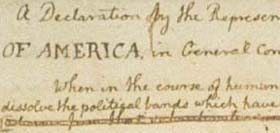 A Declaration by the Represen
OF AMERICA, in General Con
When in the course of human
dissolve the political bands which have